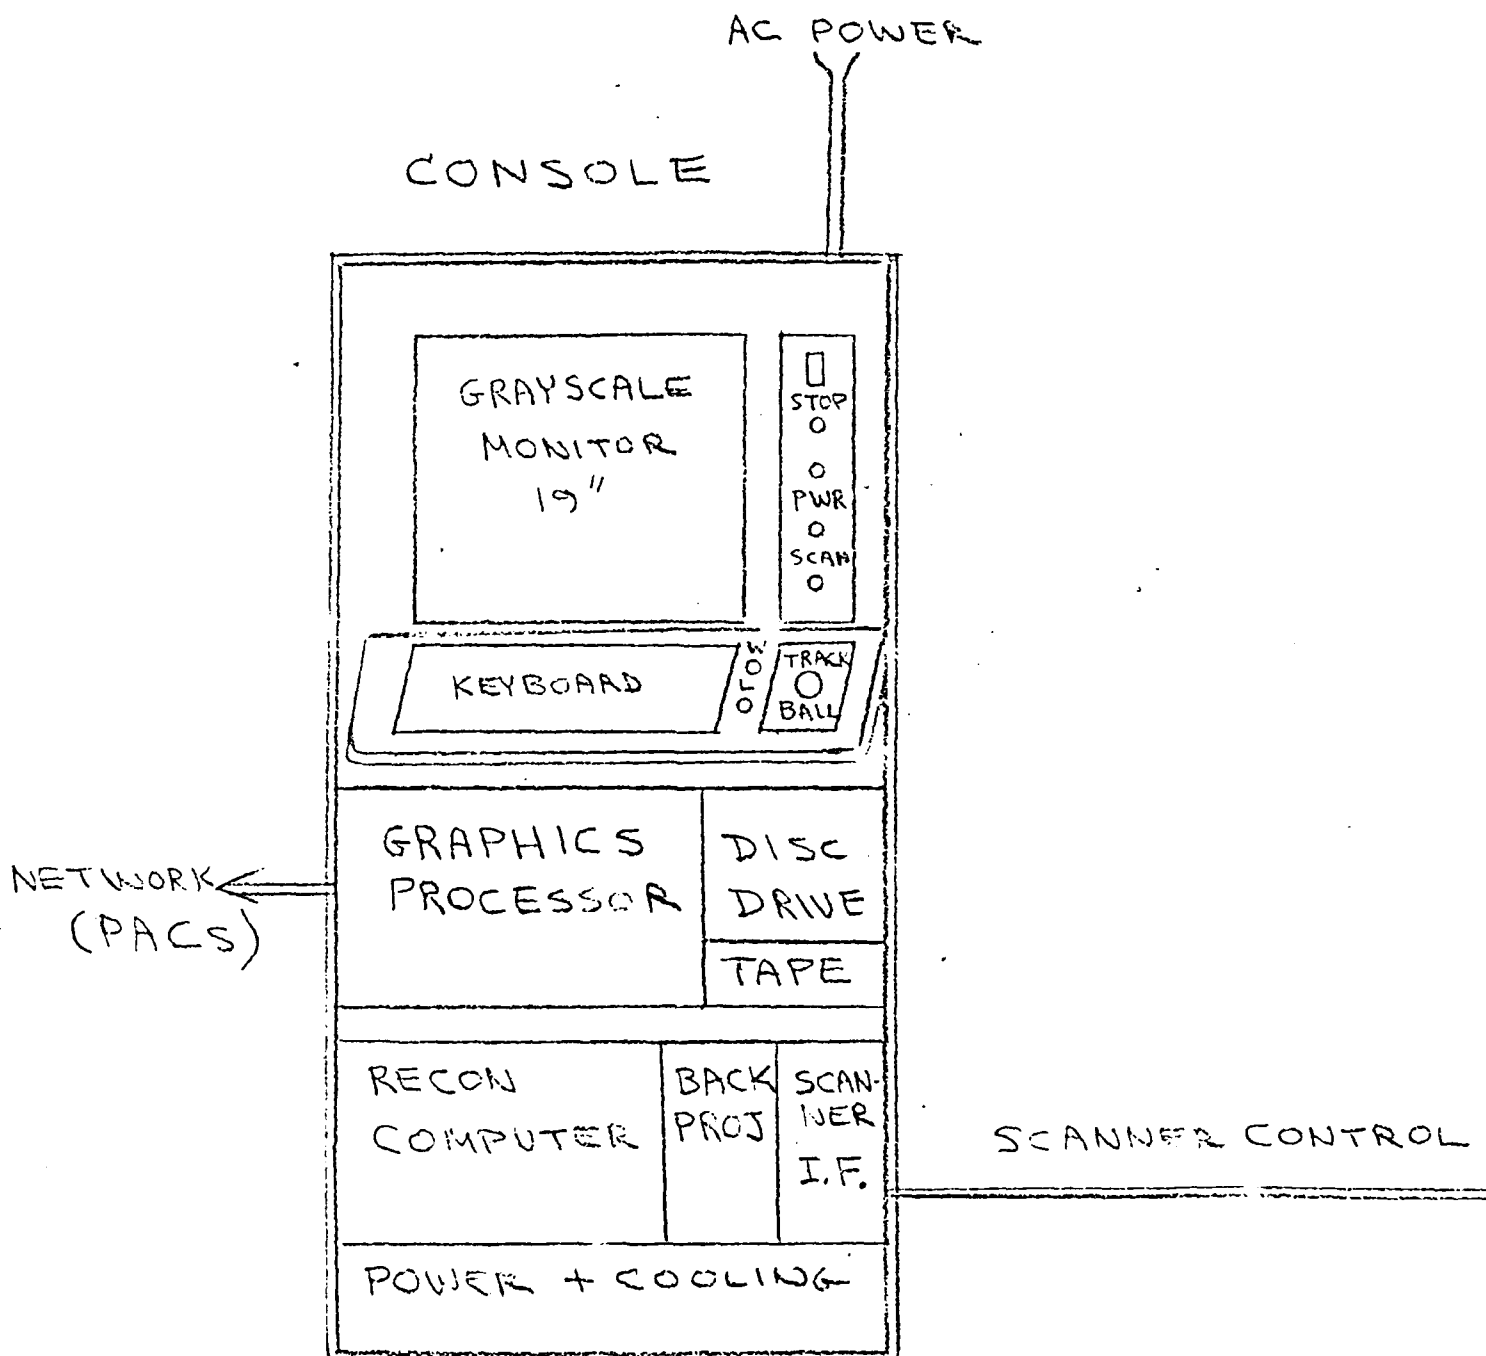 AC POWER
CONSOLE
GRAYSCALE
MONITOR
19"
STOP
PWR
SCAN
KEYBOARD
W
O
L
O
TRACK
BALL
GRAPHICS
PROCESSOR
DISC
DRIVE
TAPE
NETWORK
(PACS)
RECON
COMPUTER
BACK
PROJ
SCAN-
NER
I.F.
SCANNER CONTROL
POWER + COOLING